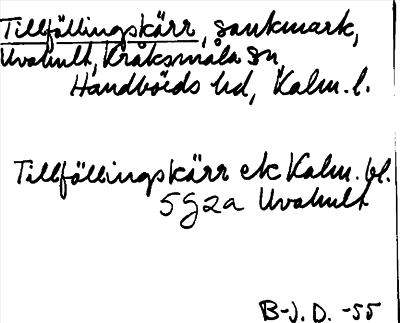 Tillfällingskärr, sankmark,
Uvahult, Kråksmåla sn,
Handbörds hd, Kalm. l.
Tillfällingskärr ek Kalm. bl.
5g2a Uvahult
B-J. D. -55